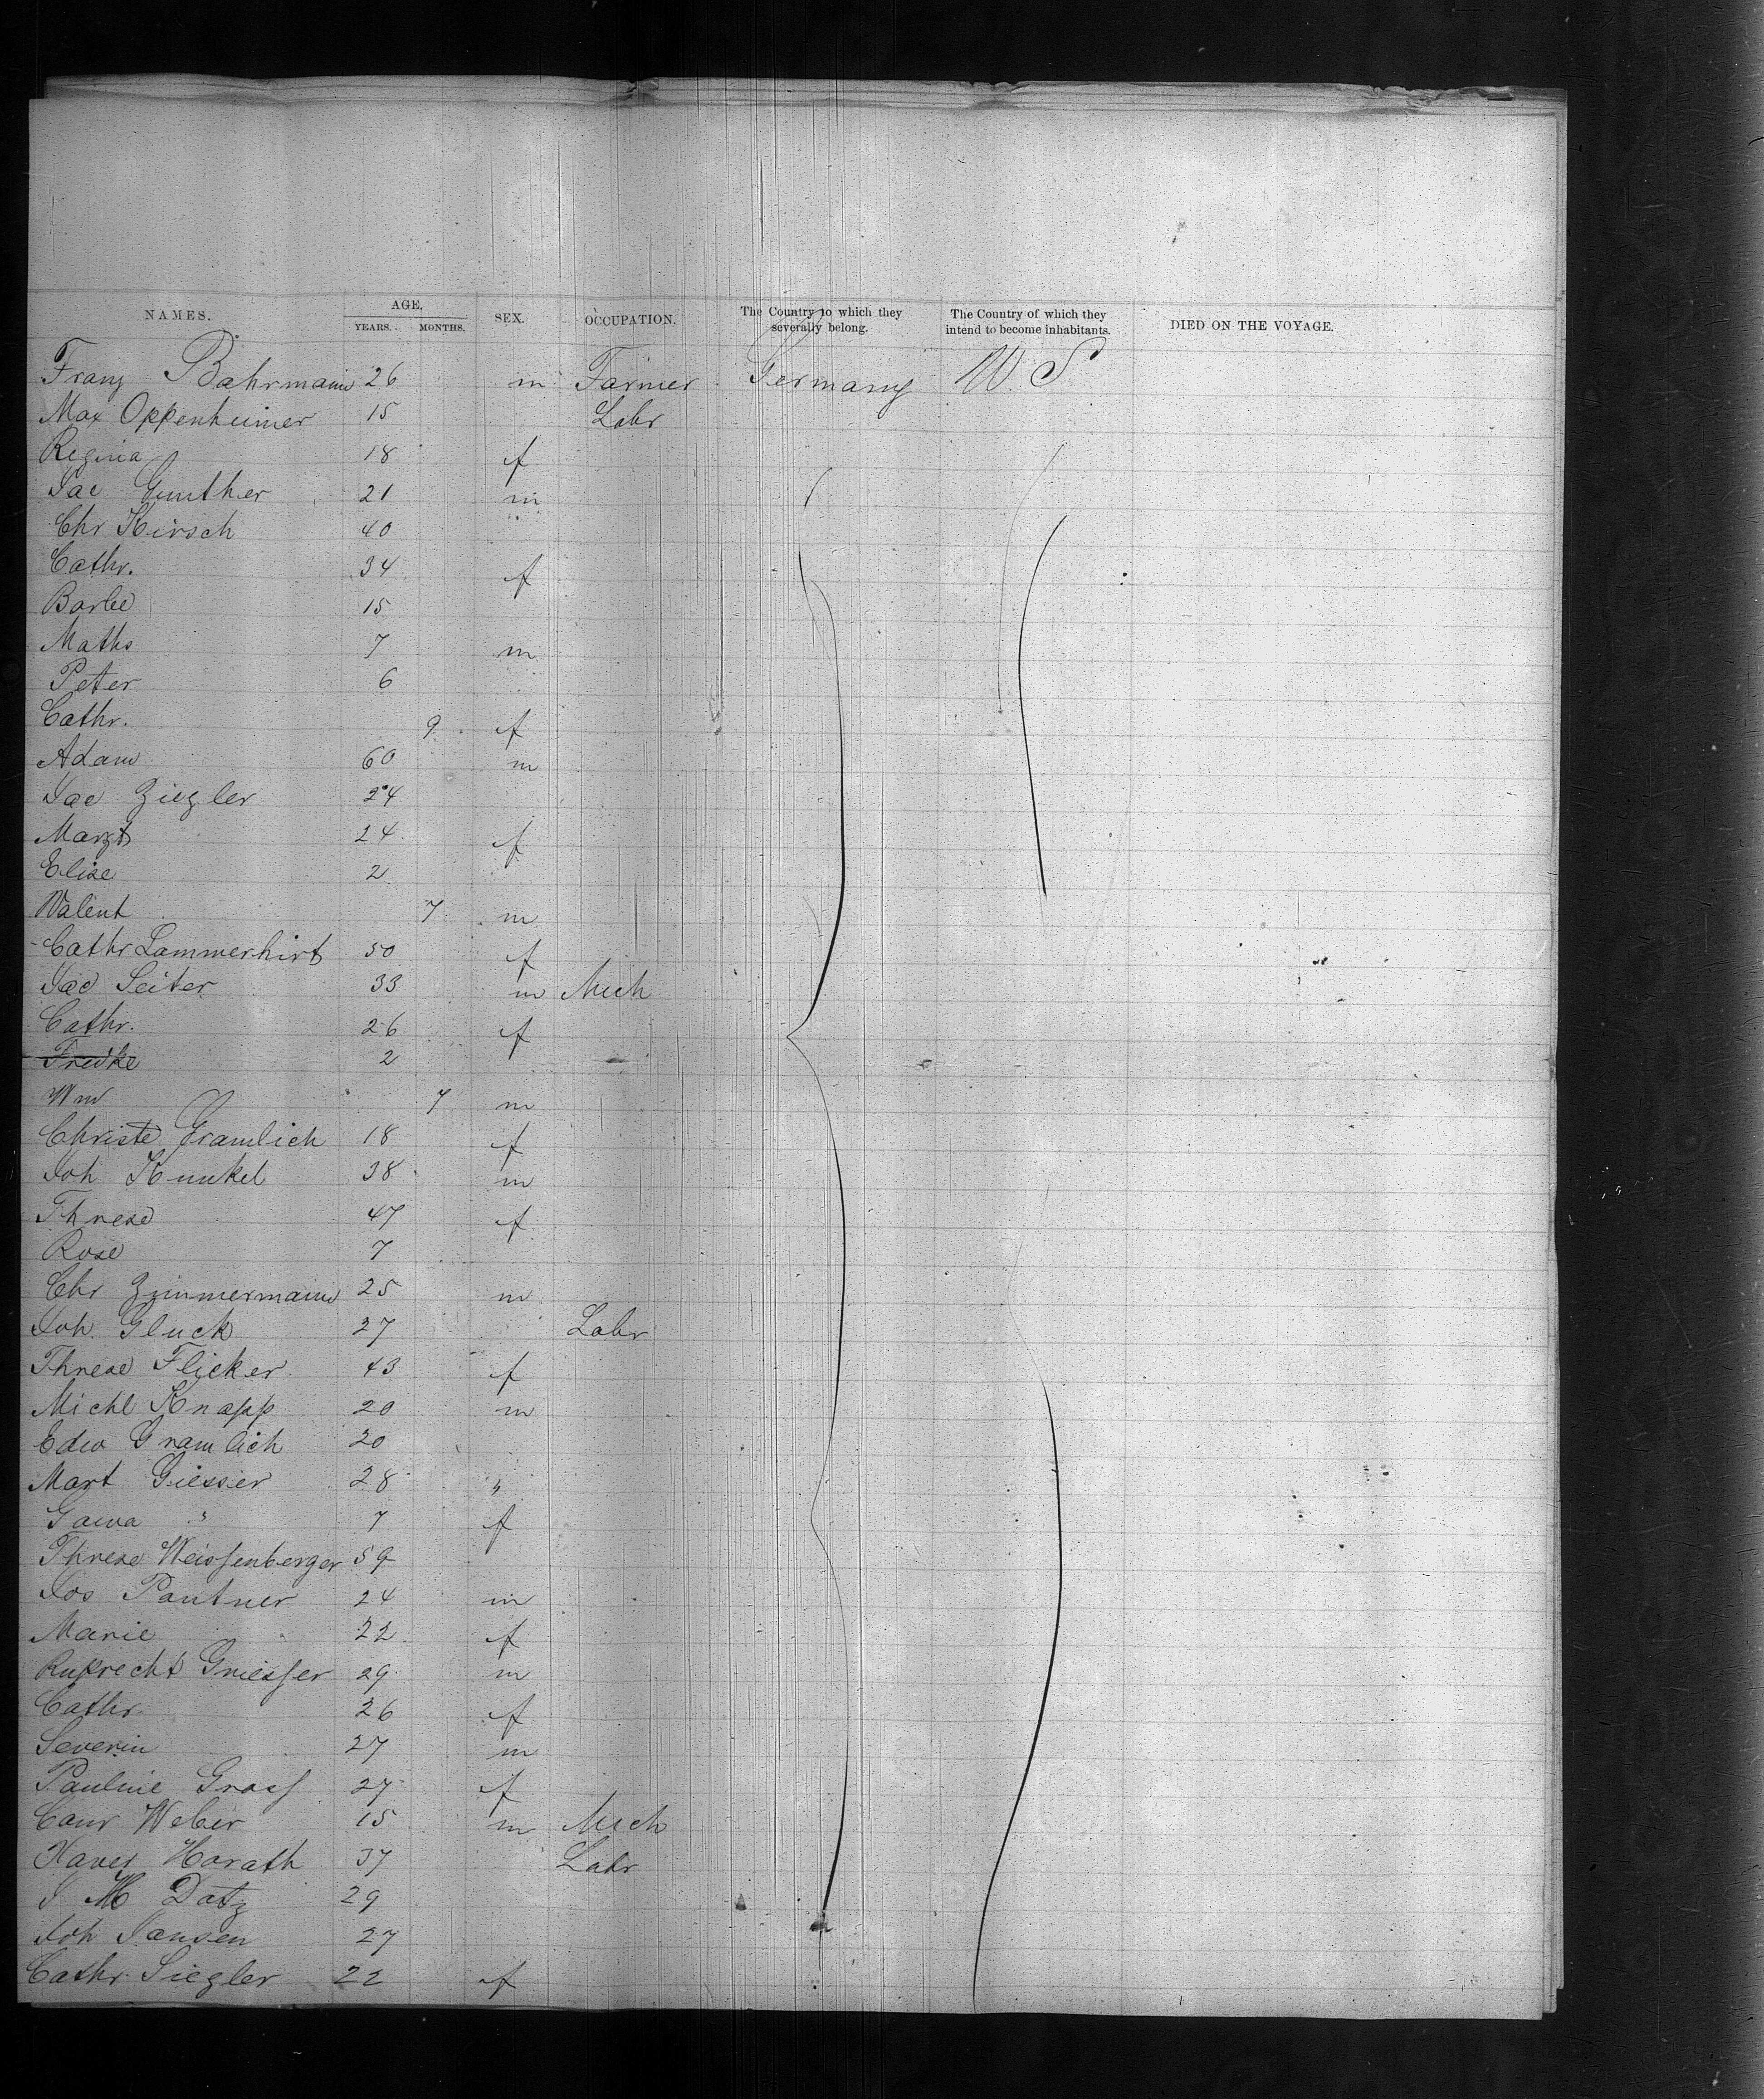 NAMES. AGE. YEARS. MONTHS. SEX. OCCUPATION. The Country to which they severally belong. The Country of which they intend to become inhabitants. DIED ON THE VOYAGE.
Franz Bahrmann 26 m Farmer Germany U. S
Max Oppenheimer 15 Labr
Regina 18 f
Jac Gunther 21 m
Chr Kirsch 40
Cathr. 34 f
Barbe 15
Maths 7 m
Peter 6
Cathr. 9 f
Adam 60 m
Jac Ziegler 24
Margt 24 f
Elise 2
Valent 7 m
Cathr Lammerhirt 50 f
Jac Seiter 33 m Mech
Cathr. 26 f
Fredke 2
Wm 7 m
Christe Gramlich 18 f
Joh Kunkel 38 m
Threse 47 f
Rose 7
Chr Zimmermann 25 m
Joh. Gluck 27 Labr
Threse Flicker 43 f
Michl Knapp 20 m
Edw Gramlich 20
Mart Giesser 28 "
" 7 f
Threse Weissenberger 59
Jos Pantner 24 m
Marie 22 f
Ruprecht Griesser 29 m
Cathr. 26 f
Severin 27 m
Pauline Grass 27 f
Weber 15 m Mech
Xaver Horath 37 Labr
J M Datz 29
Joh Jansen 27
Cathr. Siegler 22 f